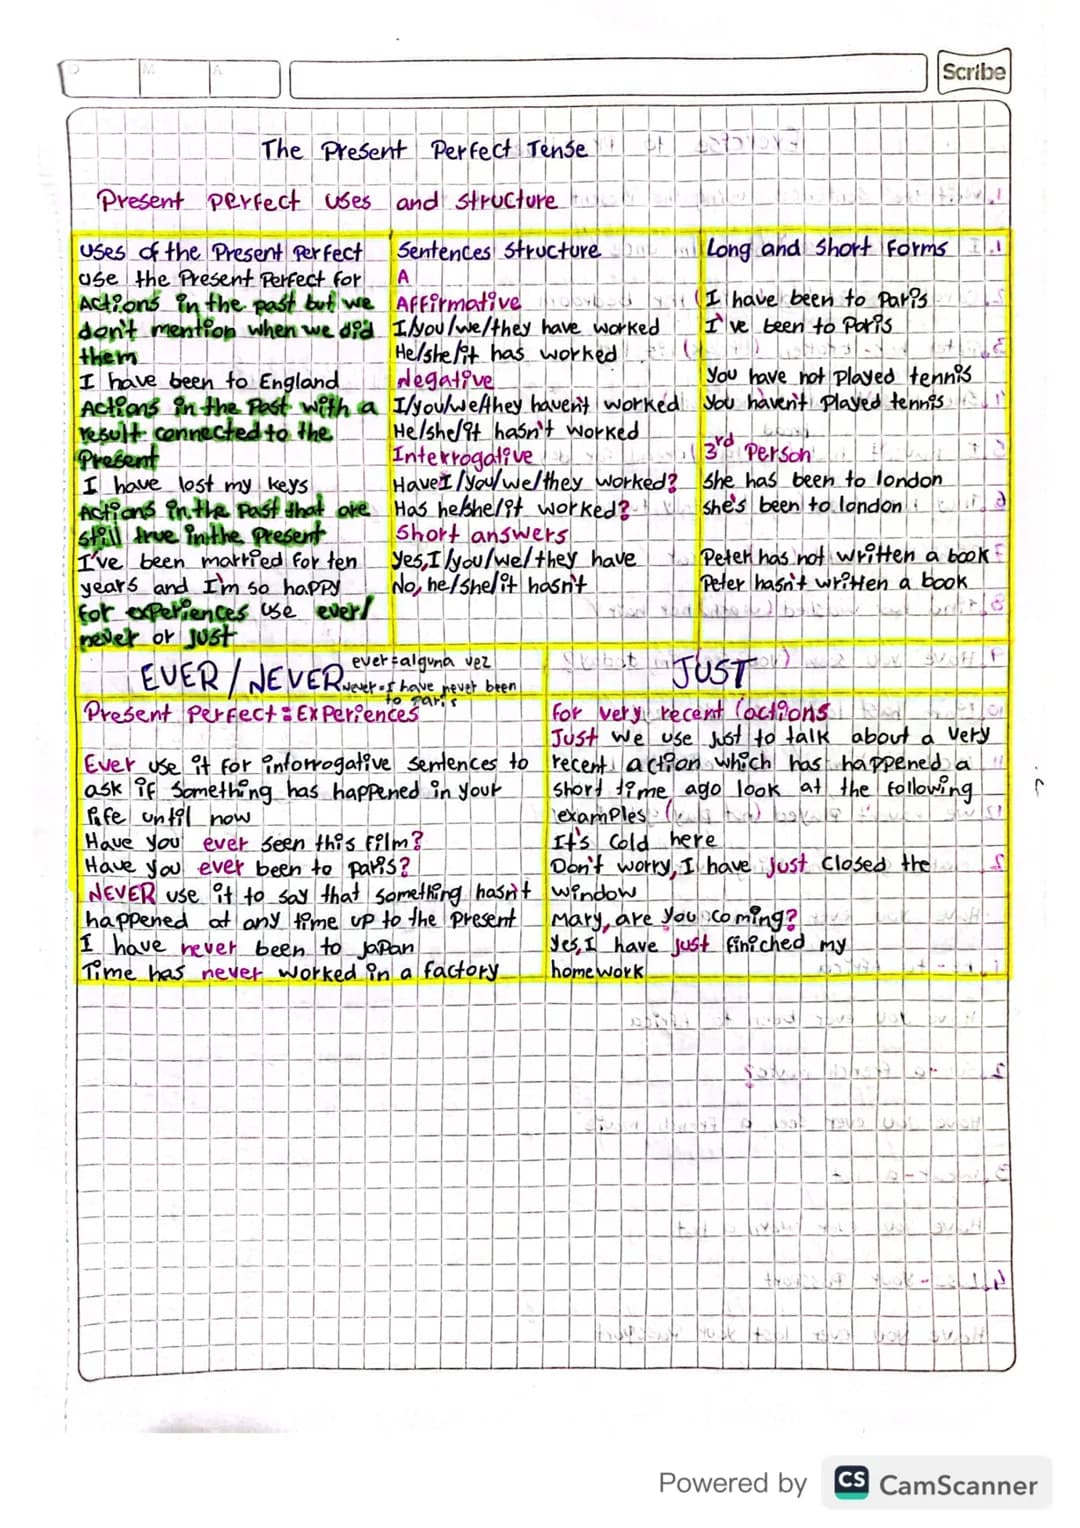 Scribe
The Present Perfect Tense
Present perfect uses and structure
Uses of the Present Perfect
Use the Present Perfect for
Actions in the past but we
don't mention when we did
them
I have been to England
Actions in the Past with a
result connected to the
Present
I have lost my keys
Actions in the Past that are
still true in the Present
I've been married for ten
years and I'm so happy
for experiences use ever/
never or just
Sentences Structure
A
Affirmative
I/you/we/they have worked
He/she/it has worked
Negative
I/you/we/they haven't worked
He/she/it hasn't worked
Interrogative
Have I/you/we/they worked?
Has he/she/it worked?
Short answers
Yes, I/you/we/they have
No, he/she/it hasn't
Long and Short Forms
I have been to Paris
I've been to Paris
You have not Played tennis
You haven't Played tennis
3rd Person
She has been to london
she's been to london
Peter has not written a book
Peter hasn't written a book
EVER/NEVER
ever=alguna vez
Never=I have never been
to Paris
Present Perfect: Experiences
Ever use it for intorrogative sentences to
ask if something has happened in your
life until now
Have you ever seen this film?
Have you ever been to Paris?
NEVER use it to say that something hasn't
happened at any time up to the Present
I have never been to Japan
Time has never worked in a factory
JUST
for very recent (actions
Just we use just to talk about a very
recent action which has happened a
short time ago look at the following
examples
It's cold here
Don't worry, I have just closed the
window
Mary, are you coming?
Yes, I have just finiched my
homework
Powered by CS CamScanner